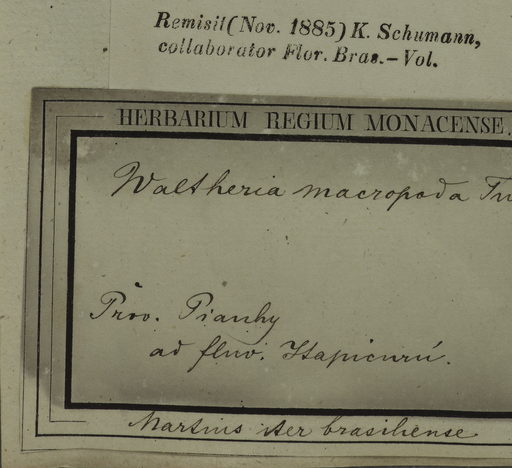 Remisit (Nov. 1885) K. Schumann,
collaborator Flor. Bras. – Vol.
HERBARIUM REGIUM MONACENSE.
Waltheria macropoda Tu
Prov. Piauhy
ad fluv. Itapicurú.
Martius iter brasiliense